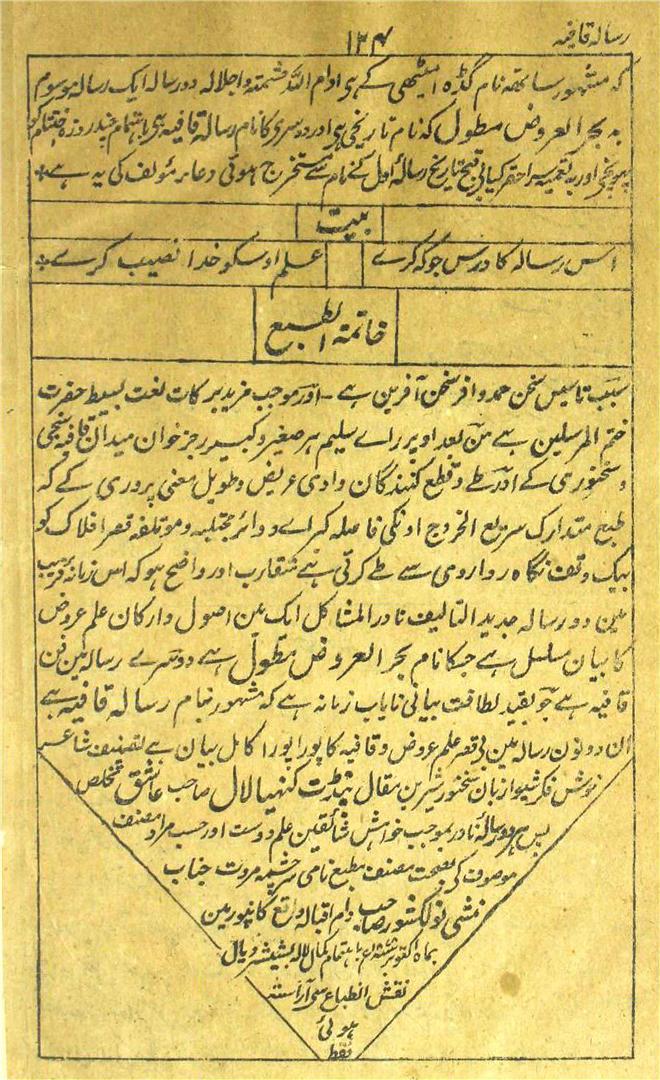 رسالہ قافیہ
۱۳۴
کہ مشہور ساتھ نام گڈہ امیٹھی کے ہی ادام اللہ حشمتہ و اجلالہ دو رسالہ ایک رسالہ موسوم
بہ بحر العروض مطول کہ نام تاریخی ہی اور دوسری کا نام رسالہ قافیہ ہی باہتمام چندر روزہ اختتام کو
پہونچی اور بہ تعمیہ احقر تاریخ رسالۂ اول کے نام سے مستخرج ہوئی دعاء مؤلف کی یہ ہے
بیت
اس رسالہ کا درس جو کہ کرے
علم اوسکو خدا نصیب کرے
خاتمۃ الطبع
سبب تاسیس سخن حمد وافر سخن آفرین ہے - اور موجب مزید برکات نعت بسیط حضرت
ختم المرسلین ہے من بعد اوپر راے سلیم ہر صغیر و کبیر رجز خوان میدان قافیہ سنجی
و سخنوری کے اور طے و قطع کنندگان وادی عریض و طویل معنی پروری کے کہ
طبع متدارک سریع الخروج اونکی فاصلہ گراے دوائر مجتلبہ و موتلفہ قصر افلاک کو
بیک وقفہ نگاہ رواروی سے طے کرتی ہے متقارب اور واضح ہو کہ اس زمانہ قریب
مین دو رسالہ جدید التالیف نادر المشاکل ایک مین اصول و ارکان علم عروض
کا بیان مسلسل ہے جسکا نام بحر العروض مطول ہے دوسرے رسالہ مین فن
قافیہ ہے جو بقید لطافت بیانی نایاب زمانہ ہے کہ مشہور بنام رسالہ قافیہ ہے
ان دونون رسالہ مین بی قصر علم عروض و قافیہ کا پورا پورا کامل بیان ہے تصنیف شاعر
خوش فکر شیوا زبان سخنور شیرین مقال پنڈت کنہیا لال صاحب عاشق تخلص
پس ہر دو رسالۂ نادر بموجب خواہش شائقین علم دوست اور حسب مراد مصنف
موصوف کی بصحت مصنف مطبع نامی سرچشمہ مروت جناب
منشی نولکشور صاحب دام اقبالہ واقع کانپور مین
بماہ اکتوبر باہتمام کمال لالہ بشیشر دیال
نقش انطباع سی آراستہ
ہوئی
فقط